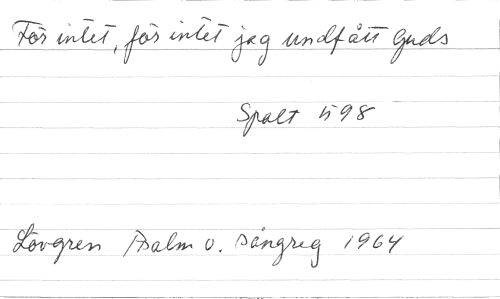 För intet, för intet jag undfått Guds
Spalt 598
Lövgren Psalm o. sångreg 1964